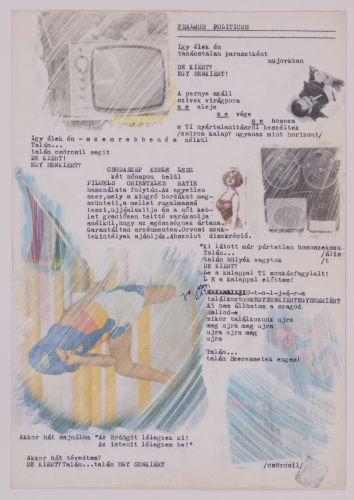 PSALMUS POLITICUS
Igy élek én
tanácstalan parasztként
majorkban
DE KIÉRT?
EGY SENKIÉRT!
A pernye száll
szivek virágpora
n e eleje
n e vége
n e hossza
s TI nyártalanitásról beszéltek
/zsiros kalap? ugyanaz mint horizont/
Igy élek én - s z e m r e b b e n é s nélkül
Talán...
talán csörcsil segit
DE KIÉRT!
EGY SENKIÉRT?
CSODASZÉP KEBLE LESZ
két hónapon belül
PILULES ORIENTALES RATIE
használata folytán. Az egyetlen
szer, mely a kiugró bordákat meg-
szünteti, a mellet rugalmassá
teszi, ujjáalakitja és a női kebl-
et graciózen telité varázsolja
anélkül, hogy az egészségnek ártana.
Garantáltan arzénmentes. Orvosi szak-
tekintélyek ajánlják. Abszolut diszkréció.
Ki látott már pártatlan homoszekszu-
Talán... /ális
talán hülyék vagytok /t
DE KIÉRT?
Le a kalappal TI gondsárfagylalt!
L E a kalappal előttem!
U-t-o-l-j-á-r-a
találkoztunk EGYSENKIÉRTEGYSENKIÉRT
Ki nem állhatom a szagod
Hallod-e
mikor találkozunk ujra
meg ujra meg ujra
ujra meg ujra
ujra
Talán...
talán Szeressetek engem!
Akkor hát majnálom "Az ördögöt lélegzek ki!
Az istenit lélegzem be!"
Akkor hát tévedtem?
DE KIÉRT? Talán...talán EGY SENKIÉRT
/csörcsil/